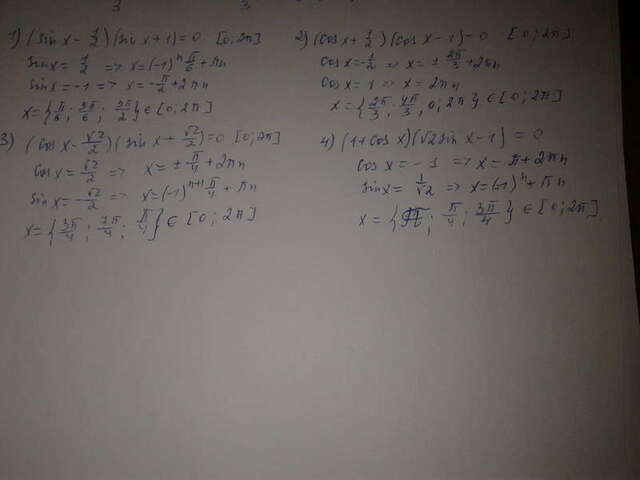 3 3
1) (sin x - 1/2)(sin x + 1) = 0 [0; 2π]
sin x = 1/2 => x = (-1)ⁿ π/6 + πn
sin x = -1 => x = -π/2 + 2πn
x = {π/6; 5π/6; 3π/2} ∈ [0; 2π]
2) (cos x + 1/2)(cos x - 1) = 0 [0; 2π]
cos x = -1/2 => x = ± 2π/3 + 2πn
cos x = 1 => x = 2πn
x = {2π/3; 4π/3; 0; 2π} ∈ [0; 2π]
3) (cos x - √2/2)(sin x + √2/2) = 0 [0; 2π]
cos x = √2/2 => x = ± π/4 + 2πn
sin x = -√2/2 => x = (-1)ⁿ⁺¹ π/4 + πn
x = {3π/4; 7π/4; π/4} ∈ [0; 2π]
4) (1 + cos x)(√2 sin x - 1) = 0
cos x = -1 => x = π + 2πn
sin x = 1/√2 => x = (-1)ⁿ + πn
x = {π; π/4; 3π/4} ∈ [0; 2π]